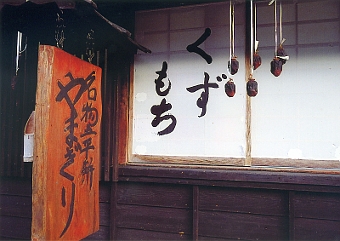 くず
もち
名物五平餅
やまぎり